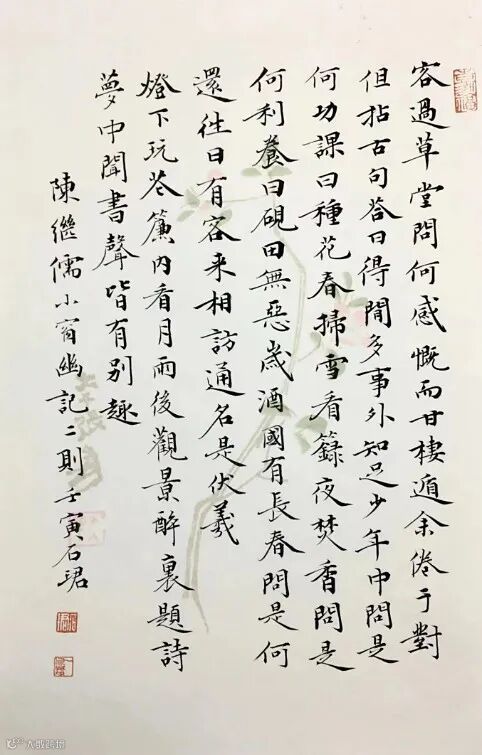 客過草堂問何感慨而甘棲遁余倦于對
但拈古句荅曰得閒多事外知足少年中問是
何功課曰種花春掃雪看籙夜焚香問是
何利養曰硯田無惡歲酒國有長春問是何
還往曰有客来相訪通名是伏羲
燈下玩花簾内看月雨後觀景醉裏題詩
夢中聞書聲皆有别趣
陳繼儒小窗幽記二則壬寅石珺